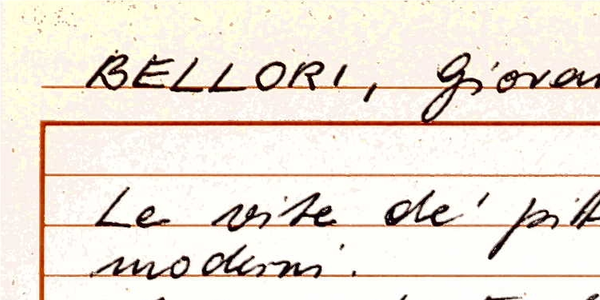 BELLORI, Giovan
Le vite de' pitt
moderni.